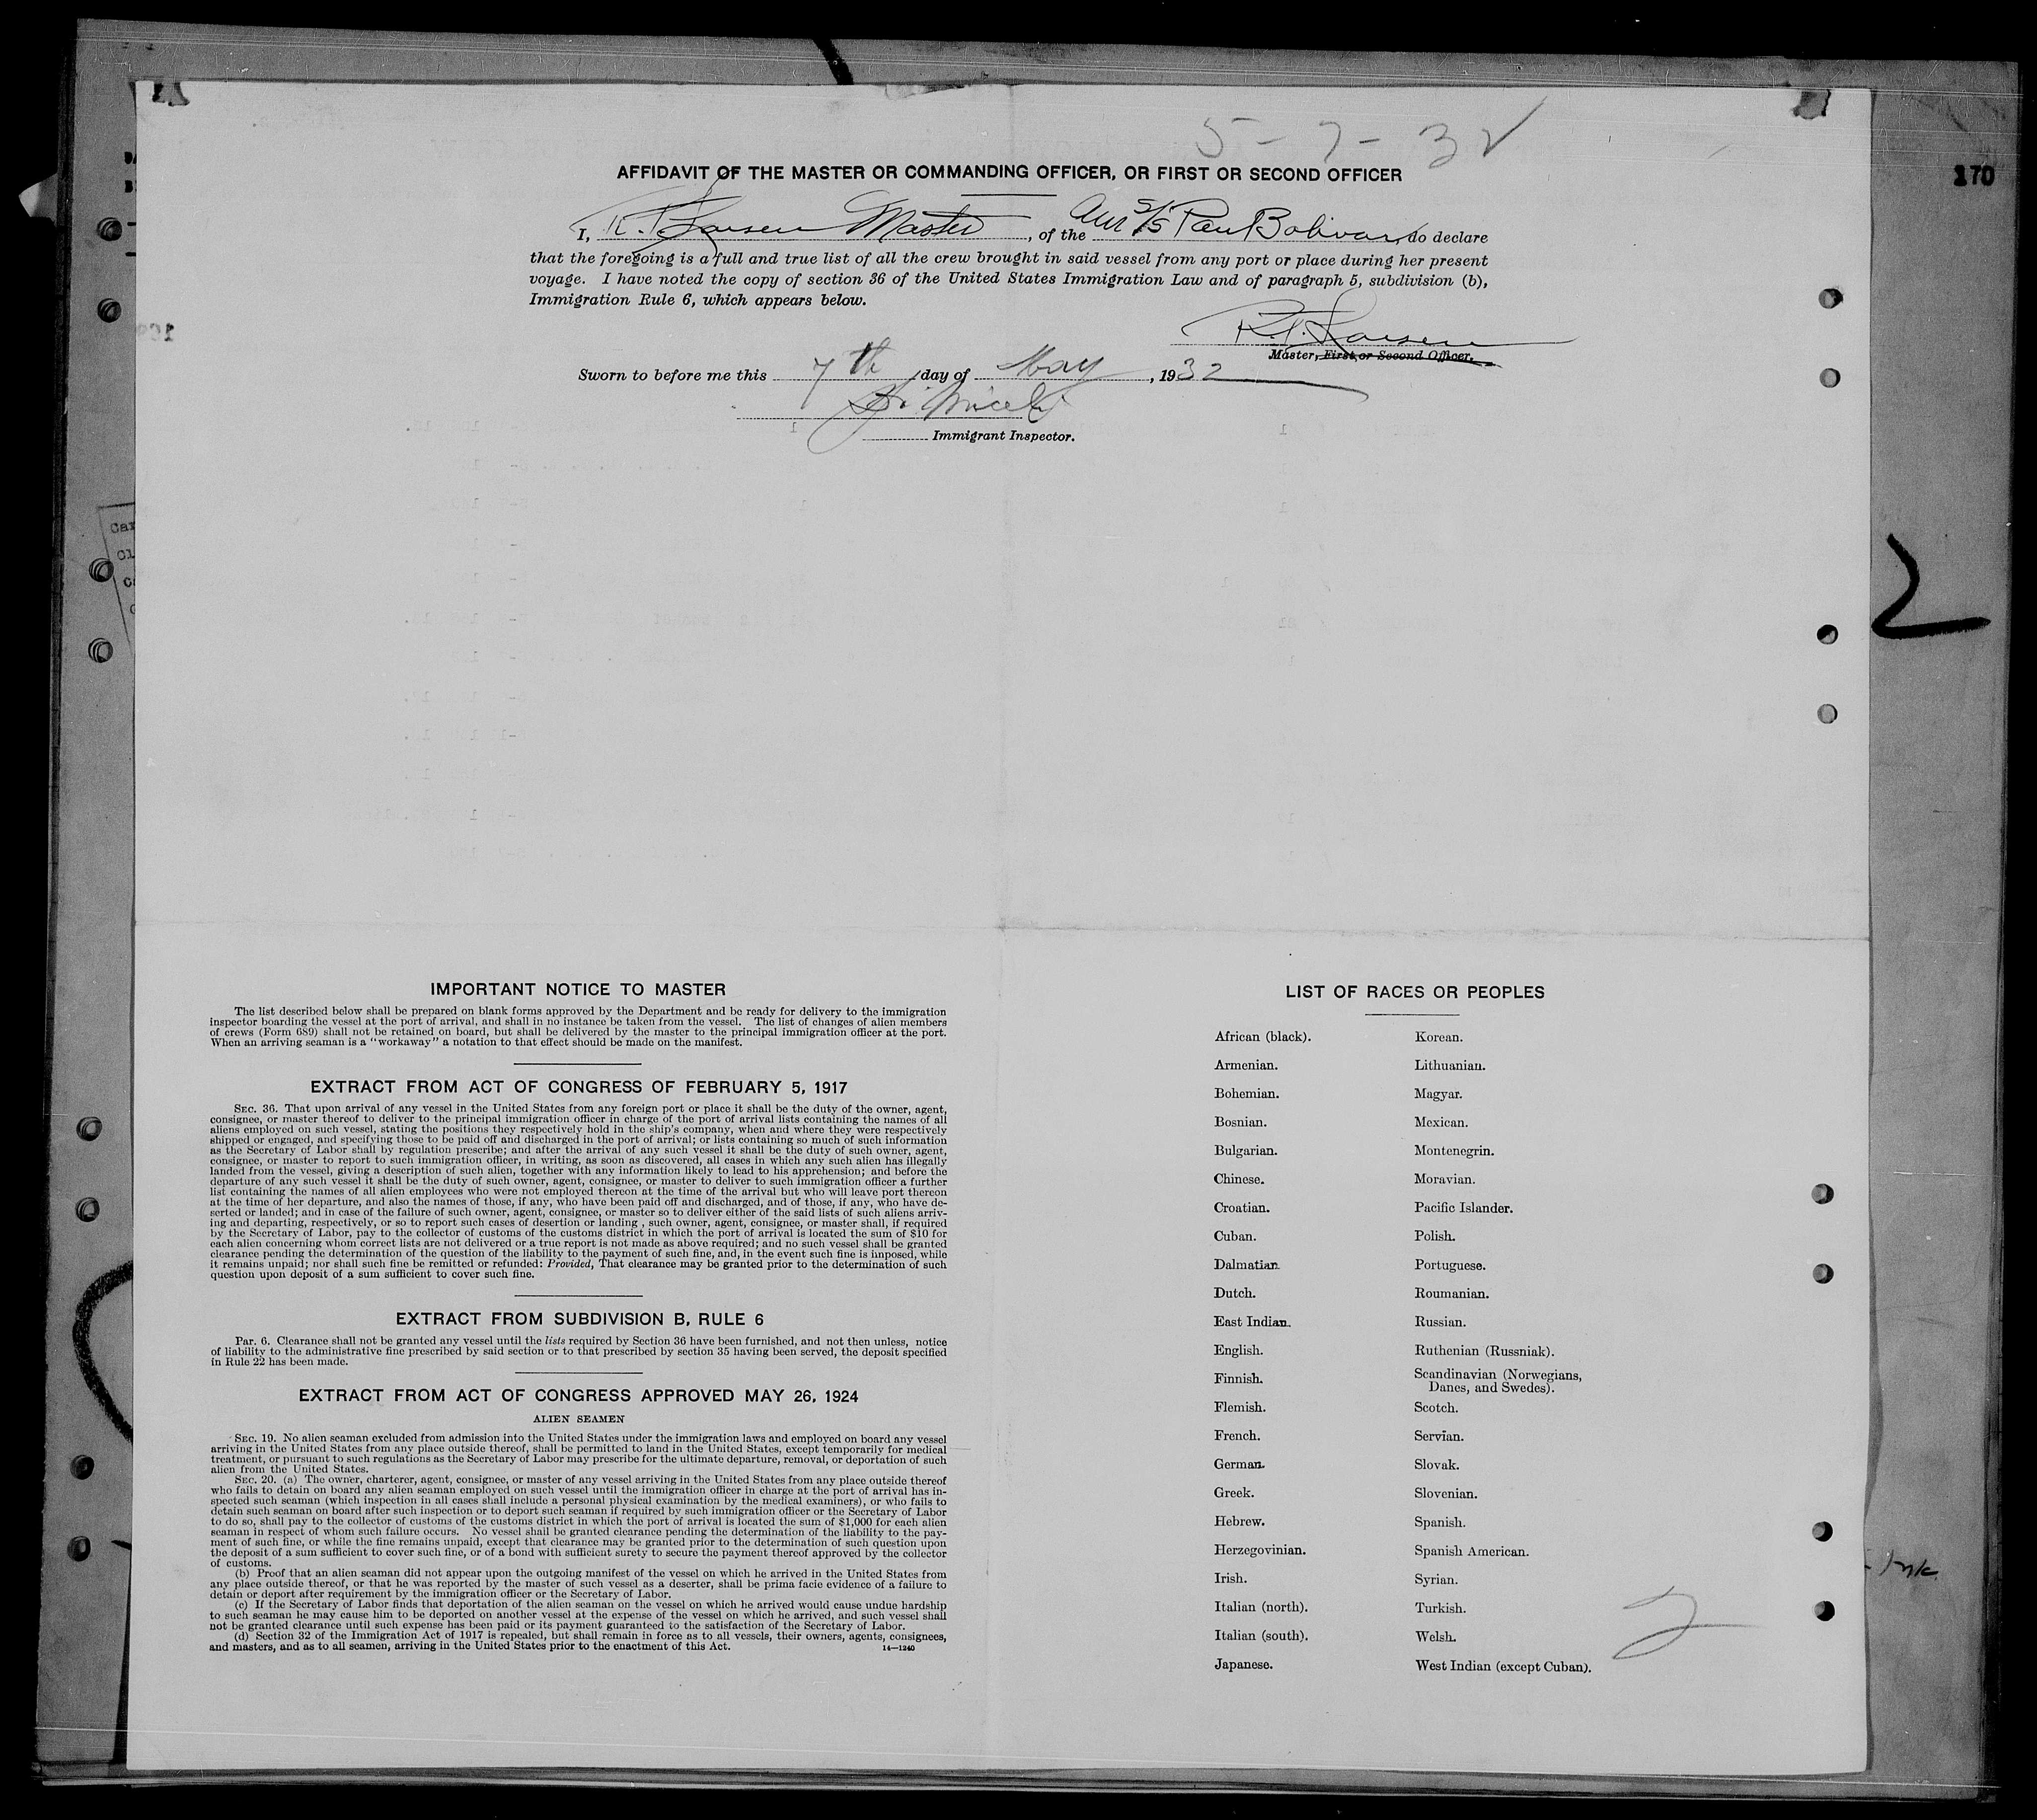 5-7-32
170
AFFIDAVIT OF THE MASTER OR COMMANDING OFFICER, OR FIRST OR SECOND OFFICER
I, Larsen Master, of the Am S/S Paul Bolivar, do declare
that the foregoing is a full and true list of all the crew brought in said vessel from any port or place during her present
voyage. I have noted the copy of section 36 of the United States Immigration Law and of paragraph 5, subdivision (b),
Immigration Rule 6, which appears below.
Larsen
Master, First or Second Officer.
Sworn to before me this 7th day of May, 1932
Immigrant Inspector.
2
IMPORTANT NOTICE TO MASTER
The list described below shall be prepared on blank forms approved by the Department and be ready for delivery to the immigration
inspector boarding the vessel at the port of arrival, and shall in no instance be taken from the vessel. The list of changes of alien members
of crews (Form 689) shall not be retained on board, but shall be delivered by the master to the principal immigration officer at the port.
When an arriving seaman is a "workaway" a notation to that effect should be made on the manifest.
EXTRACT FROM ACT OF CONGRESS OF FEBRUARY 5, 1917
SEC. 36. That upon arrival of any vessel in the United States from any foreign port or place it shall be the duty of the owner, agent,
consignee, or master thereof to deliver to the principal immigration officer in charge of the port of arrival lists containing the names of all
aliens employed on such vessel, stating the positions they respectively hold in the ship's company, when and where they were respectively
shipped or engaged, and specifying those to be paid off and discharged in the port of arrival; or lists containing so much of such information
as the Secretary of Labor shall by regulation prescribe; and after the arrival of any such vessel it shall be the duty of such owner, agent,
consignee, or master to report to such immigration officer, in writing, as soon as discovered, all cases in which any such alien has illegally
landed from the vessel, giving a description of such alien, together with any information likely to lead to his apprehension; and before the
departure of any such vessel it shall be the duty of such owner, agent, consignee, or master to deliver to such immigration officer a further
list containing the names of all alien employees who were not employed thereon at the time of the arrival but who will leave port thereon
at the time of her departure, and also the names of those, if any, who have been paid off and discharged, and of those, if any, who have de-
serted or landed; and in case of the failure of such owner, agent, consignee, or master so to deliver either of the said lists of such aliens arriv-
ing and departing, respectively, or so to report such cases of desertion or landing, such owner, agent, consignee, or master shall, if required
by the Secretary of Labor, pay to the collector of customs of the customs district in which the port of arrival is located the sum of $10 for
each alien concerning whom correct lists are not delivered or a true report is not made as above required; and no such vessel shall be granted
clearance pending the determination of the question of the liability to the payment of such fine, and, in the event such fine is imposed, while
it remains unpaid; nor shall such fine be remitted or refunded: Provided, That clearance may be granted prior to the determination of such
question upon deposit of a sum sufficient to cover such fine.
EXTRACT FROM SUBDIVISION B, RULE 6
Par. 6. Clearance shall not be granted any vessel until the lists required by Section 36 have been furnished, and not then unless, notice
of liability to the administrative fine prescribed by said section or to that prescribed by section 35 having been served, the deposit specified
in Rule 22 has been made.
EXTRACT FROM ACT OF CONGRESS APPROVED MAY 26, 1924
ALIEN SEAMEN
SEC. 19. No alien seaman excluded from admission into the United States under the immigration laws and employed on board any vessel
arriving in the United States from any place outside thereof, shall be permitted to land in the United States, except temporarily for medical
treatment, or pursuant to such regulations as the Secretary of Labor may prescribe for the ultimate departure, removal, or deportation of such
alien from the United States.
SEC. 20. (a) The owner, charterer, agent, consignee, or master of any vessel arriving in the United States from any place outside thereof
who fails to detain on board any alien seaman employed on such vessel until the immigration officer in charge at the port of arrival has in-
spected such seaman (which inspection in all cases shall include a personal physical examination by the medical examiners), or who fails to
detain such seaman on board after such inspection or to deport such seaman if required by such immigration officer or the Secretary of Labor
to do so, shall pay to the collector of customs of the customs district in which the port of arrival is located the sum of $1,000 for each alien
seaman in respect of whom such failure occurs. No vessel shall be granted clearance pending the determination of the liability to the pay-
ment of such fine, or while the fine remains unpaid, except that clearance may be granted prior to the determination of such question upon
the deposit of a sum sufficient to cover such fine, or of a bond with sufficient surety to secure the payment thereof approved by the collector
of customs.
(b) Proof that an alien seaman did not appear upon the outgoing manifest of the vessel on which he arrived in the United States from
any place outside thereof, or that he was reported by the master of such vessel as a deserter, shall be prima facie evidence of a failure to
detain or deport after requirement by the immigration officer or the Secretary of Labor.
(c) If the Secretary of Labor finds that deportation of the alien seaman on the vessel on which he arrived would cause undue hardship
to such seaman he may cause him to be deported on another vessel at the expense of the vessel on which he arrived, and such vessel shall
not be granted clearance until such expense has been paid or its payment guaranteed to the satisfaction of the Secretary of Labor.
(d) Section 32 of the Immigration Act of 1917 is repealed, but shall remain in force as to all vessels, their owners, agents, consignees,
and masters, and as to all seamen, arriving in the United States prior to the enactment of this Act.
14—1240
LIST OF RACES OR PEOPLES
African (black).
Armenian.
Bohemian.
Bosnian.
Bulgarian.
Chinese.
Croatian.
Cuban.
Dalmatian.
Dutch.
East Indian.
English.
Finnish.
Flemish.
French.
German.
Greek.
Hebrew.
Herzegovinian.
Irish.
Italian (north).
Italian (south).
Japanese.
Korean.
Lithuanian.
Magyar.
Mexican.
Montenegrin.
Moravian.
Pacific Islander.
Polish.
Portuguese.
Roumanian.
Russian.
Ruthenian (Russniak).
Scandinavian (Norwegians,
Danes, and Swedes).
Scotch.
Servian.
Slovak.
Slovenian.
Spanish.
Spanish American.
Syrian.
Turkish.
Welsh.
West Indian (except Cuban).
2